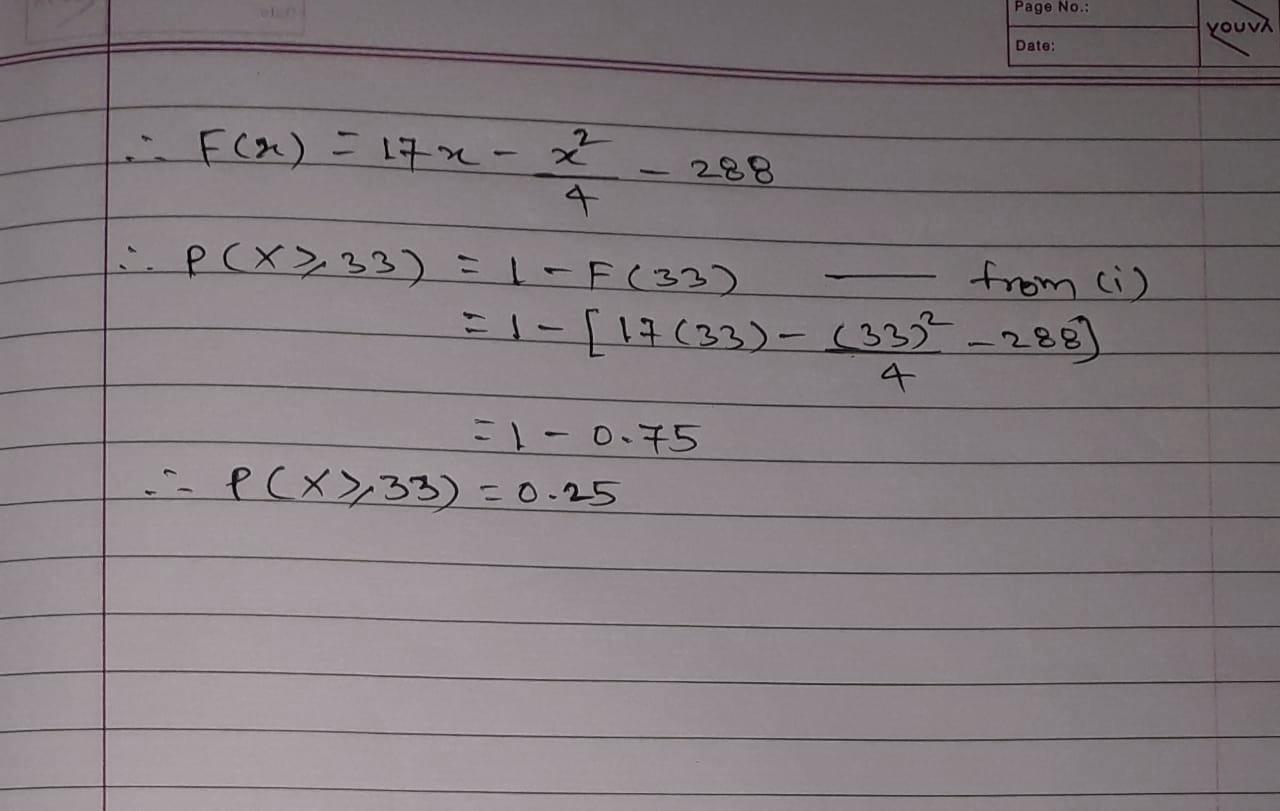 Page No.:
Date:
YOUVA
∴ F(x) = 17x - x²/4 - 288
∴ P(X ≥ 33) = 1 - F(33) —— from (i)
= 1 - [17(33) - (33)²/4 - 288]
= 1 - 0.75
∴ P(X ≥ 33) = 0.25